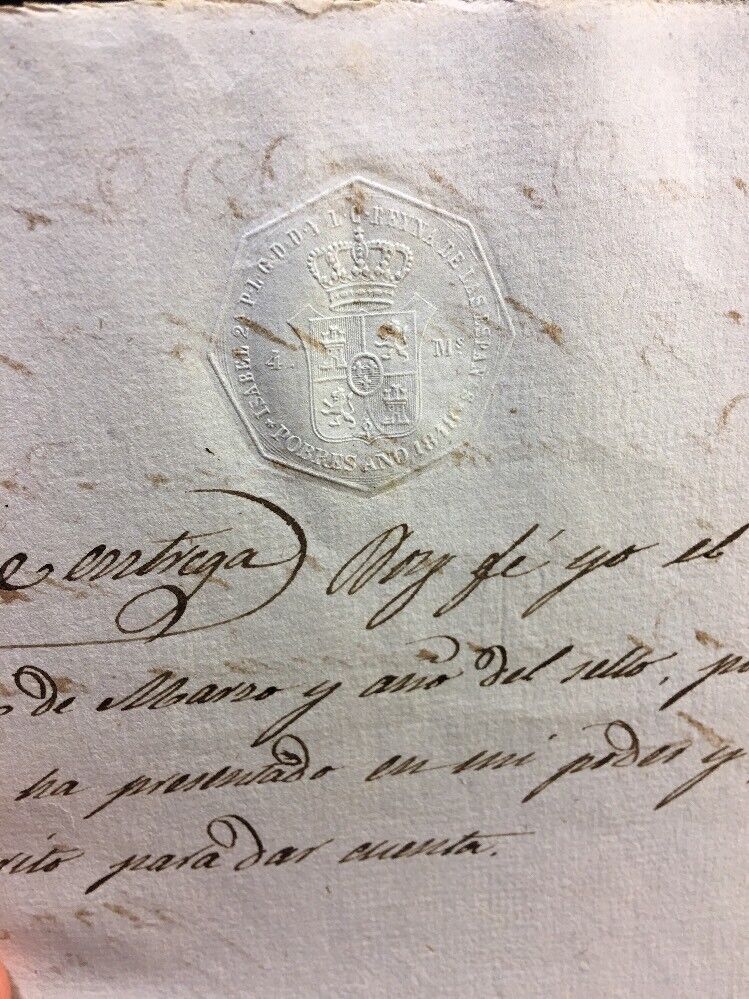 ISABEL 2ª P. L. G. D. D. Y. L. C. REYNA DE LAS ESPAÑAS
4. Mˢ
POBRES AÑO
e entrega) Doy fé yo el
de Marzo y año del sello, p
ha presentado en mi poder y
rito para dar cuenta.